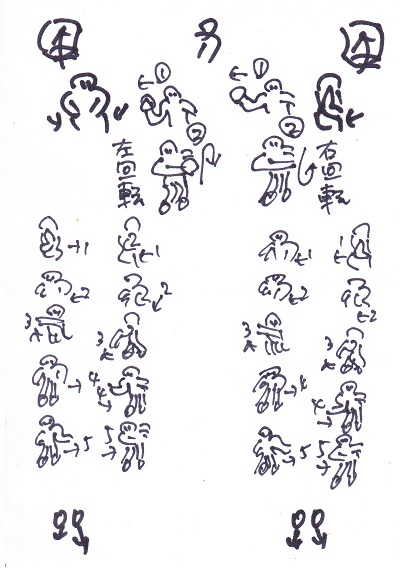 ① ①
② ②
左回転 右回転
1 1 1 1
2 2 2 2
3 3 3 3
4 4 4 4
5 5 5 5